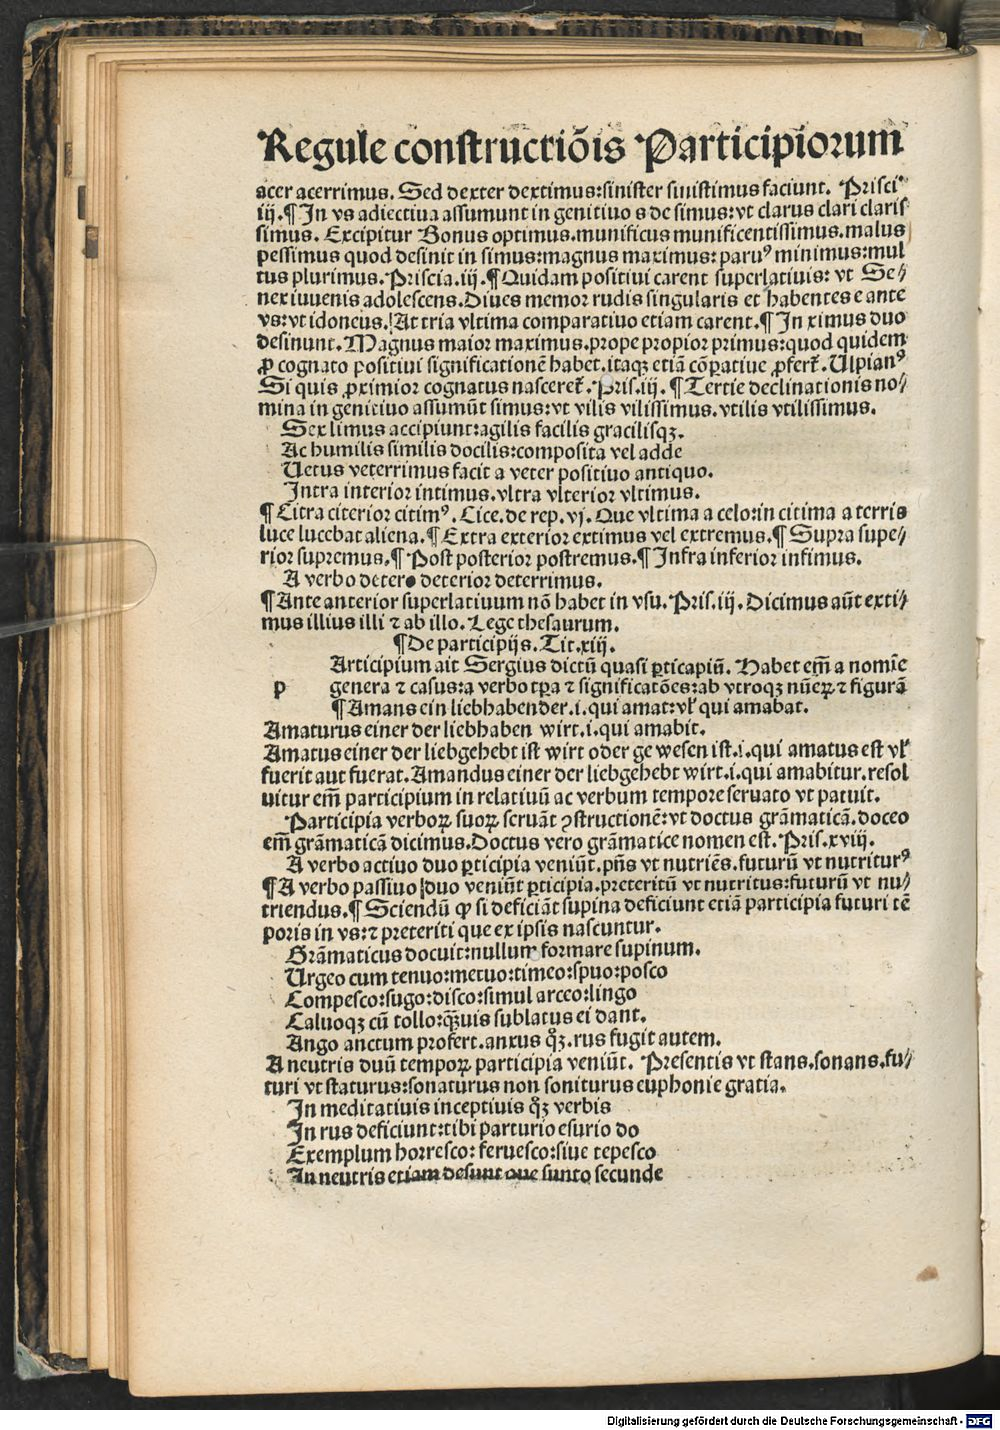 Regule constructiõis Participiorum
acer acerrimus. Sed dexter dextimus:sinister sinistimus faciunt. Prisciꝰ
iij.¶ In vs adiectiua assumunt in genitiuo s de simus:vt clarus clari claris
simus. Excipitur Bonus optimus.munificus munificentissimus.malus
pessimus quod desinit in simus:magnus maximus:paruꝰ minimus:mul
tus plurimus.Priscia.iij.¶ Quidam positiui carent superlatiuis: vt Se⸗
nex iuuenis adolescens.Diues memor rudis singularis et habentes e ante
vs:vt idoneus. At tria vltima comparatiuo etiam carent.¶ In ximus duo
desinunt. Magnus maior maximus.prope propior primus:quod quidem
ꝓ cognato positiui significationẽ habet.itaqꝫ etiã cõꝑatiue ꝓfert᷑. Ulpianꝰ
Si quis ꝓximior cognatus nasceret᷑. Pris.iij. ¶ Tertie declinationis no⸗
mina in genitiuo assumũt simus:vt vilis vilissimus. vtilis vtilissimus.
Sex limus accipiunt:agilis facilis gracilisqꝫ.
Ac humilis similis docilis:composita vel adde
Uetus veterrimus facit a veter positiuo antiquo.
Intra interior intimus.vltra vlterior vltimus.
¶ Citra citerior citimꝰ. Cice.de rep. vj. Que vltima a celo:in citima a terris
luce lucebat aliena.¶ Extra exterior extimus vel extremus.¶ Supra supe⸗
rior supremus.¶ Post posterior postremus.¶ Infra inferior infimus.
A verbo detero deterior deterrimus.
¶ Ante anterior superlatiuum nõ habet in vsu. Pris.iij. Dicimus aũt exti⸗
mus illius illi ⁊ ab illo. Lege thesaurum.
¶ De participijs. Tit.xiij.
Articipium ait Sergius dictũ quasi ꝑticapiũ. Habet em̃ a nomĩe
p genera ⁊ casus:a verbo tꝑa ⁊ significatões:ab vtroqꝫ nũeꝝ ⁊ figurã
¶ Amans ein liebhabender.i.qui amat:vl̕ qui amabat.
Amaturus einer der liebhaben wirt.i.qui amabit.
Amatus einer der liebgehebt ist wirt oder ge wesen ist.i.qui amatus est vl̕
fuerit aut fuerat. Amandus einer der liebgehebt wirt.i.qui amabitur.resol
uitur em̃ participium in relatiuũ ac verbum tempore seruato vt patuit.
Participia verboꝝ suoꝝ seruãt ꝯstructionẽ:vt doctus grãmaticã.doceo
em̃ grãmaticã dicimus.Doctus vero grãmatice nomen est. Pris.xviij.
A verbo actiuo duo ꝑticipia veniũt. pñs vt nutriẽs. futurũ vt nutriturꝰ
¶ A verbo passiuo duo veniũt ꝑticipia.preteritũ vt nutritus:futurũ vt nu⸗
triendus.¶ Sciendũ ꝙ si deficiãt supina deficiunt etiã participia futuri tẽ
poris in vs:⁊ preteriti que ex ipsis nascuntur.
Grãmaticus docuit:nullum formare supinum.
Urgeo cum tenuo:metuo:timeo:spuo:posco
Compesco:sugo:disco:simul arceo:lingo
Caluoqꝫ cũ tollo:qꝫ̃uis sublatus ei dant.
Ango anctum profert.anxus qꝫ̊. rus fugit autem.
A neutris duũ tempoꝝ participia veniũt. Presentis vt stans.sonans.fu⸗
turi vt staturus:sonaturus non soniturus euphonie gratia.
In meditatiuis inceptiuis qꝫ̊ verbis
In rus deficiunt:tibi parturio esurio do
Exemplum horresco: feruesco:siue tepesco
In neutris etiam desunt que sunto secunde
Digitalisierung gefördert durch die Deutsche Forschungsgemeinschaft - DFG